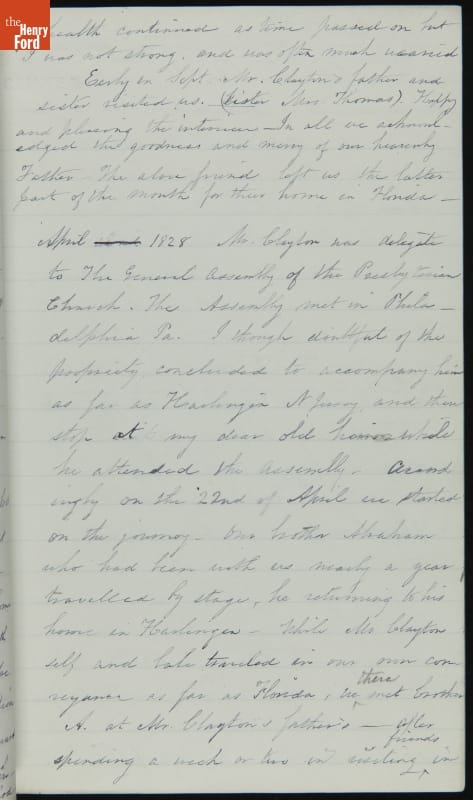 the Henry Ford
health continued as time passed on but
I was not strong, and was often much wearied
Early in Sept. Mr. Clayton's father and
sister visited us. (Sister Mrs. Thomas). Happy
and pleasing the interview — In all we acknowl-
edged the goodness and mercy of our heavenly
Father — The above friends left us the latter
part of the month for their home in Florida —
April 1828 Mr. Clayton was delegate
to The General Assembly of the Presbyterian
Church. The Assembly met in Phila-
delphia Pa. I though doubtful of the
propriety concluded to accompany him
as far as Harlingin N Jersey and then
stop at my dear old home while
he attended the Assembly — Accord
ingly on the 22nd of April we started
on the journey — Our brother Abraham
who had been with us nearly a year
travelled by stage, he returning to his
home in Harlingen — While Mr. Clayton
self and babe traveled in our own con
veyance as far as Florida, we there met brother
A. at Mr. Clayton's father's — after
spending a week or two in visiting friends in